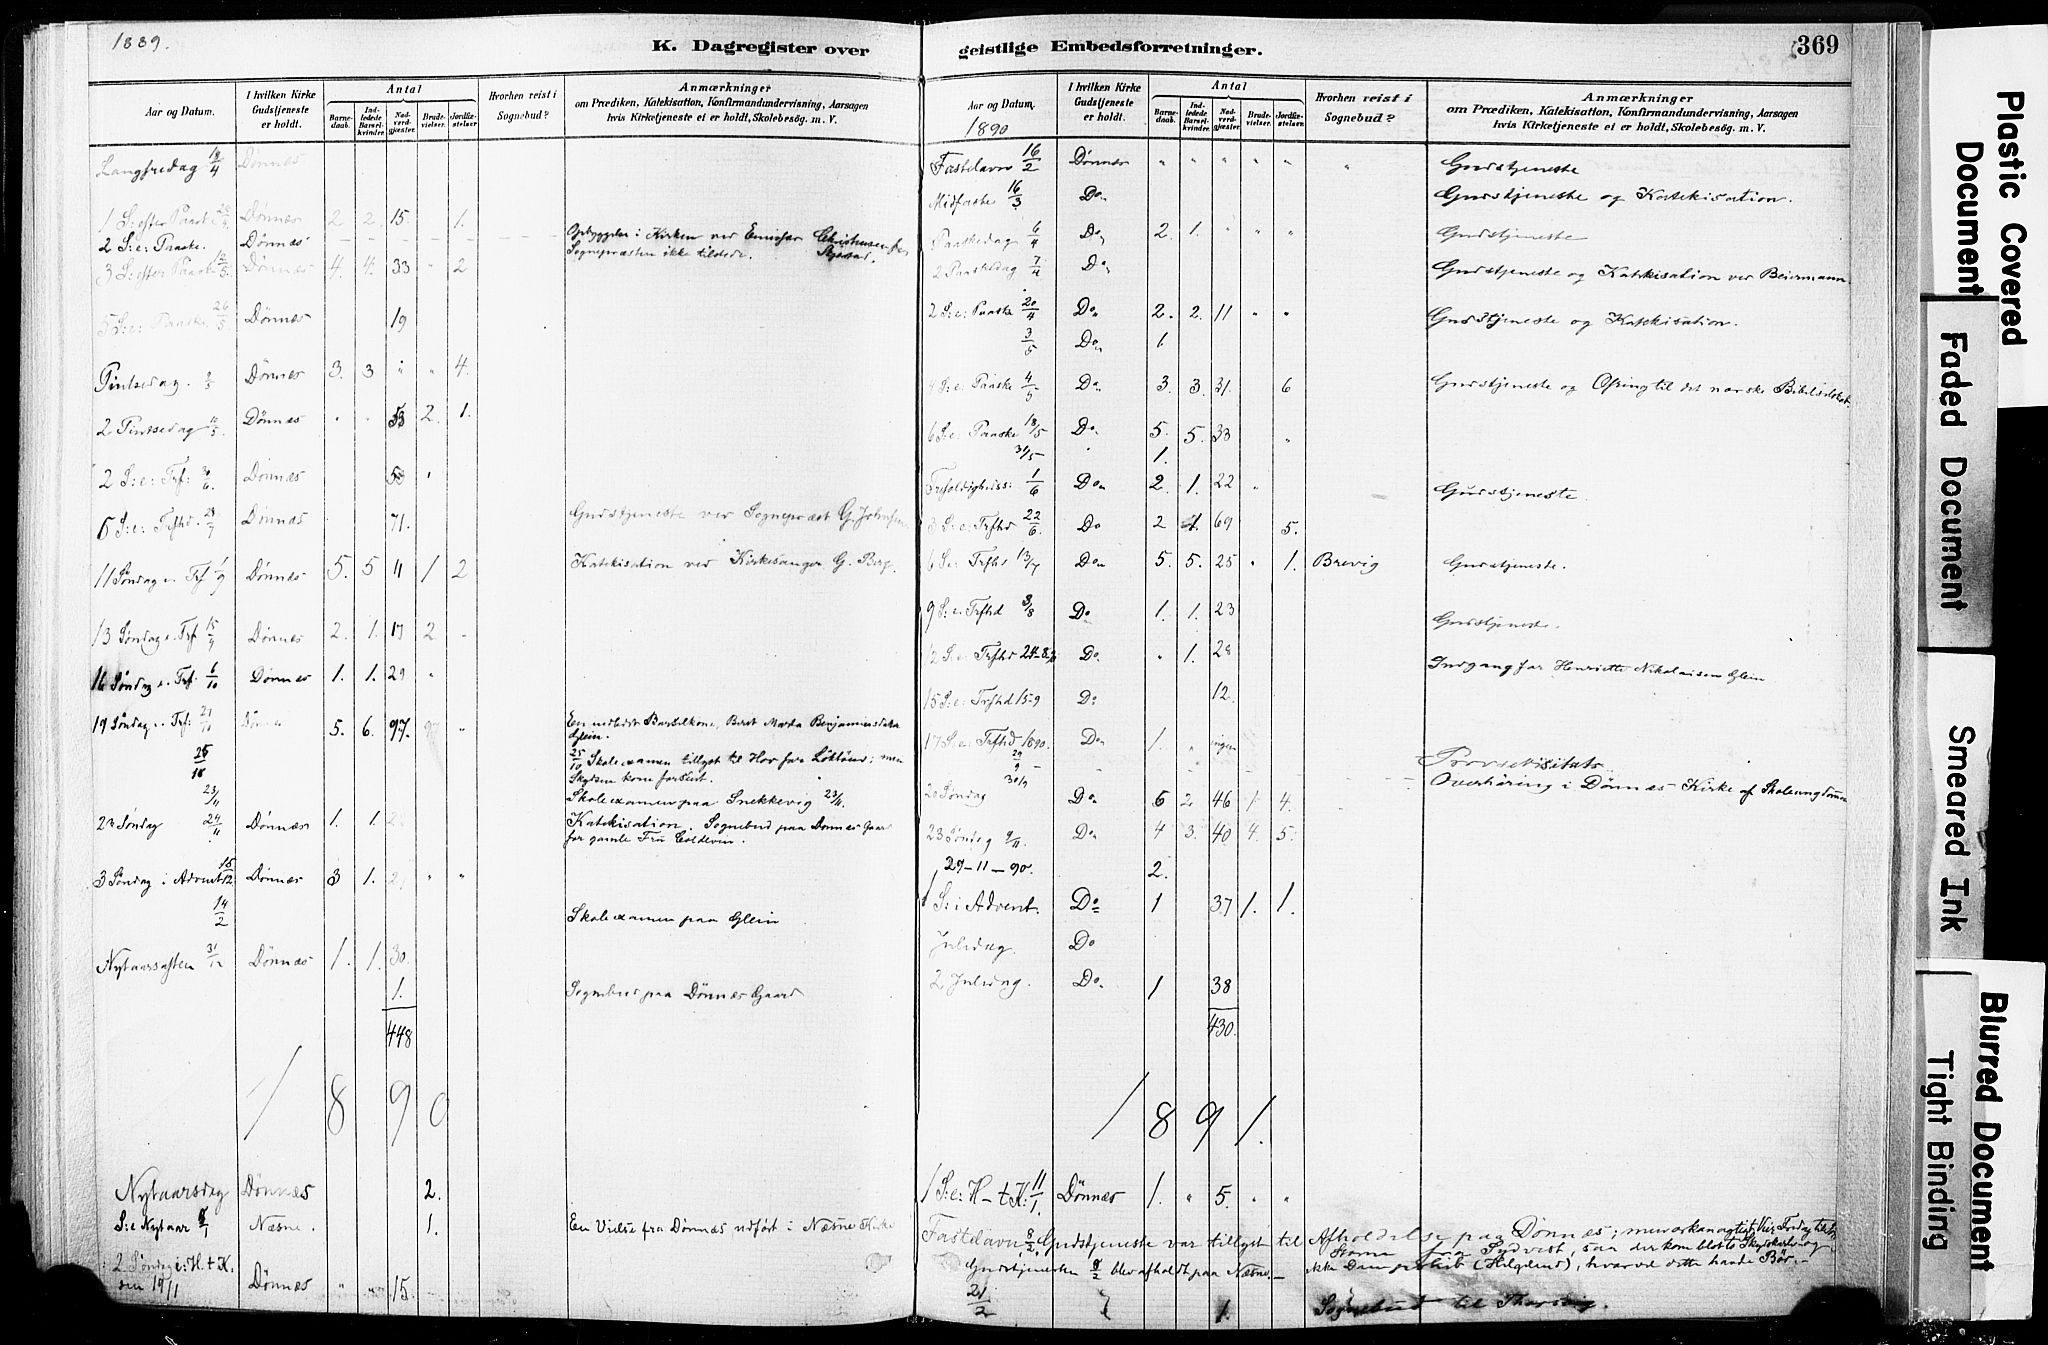 1889.
K. Dagregister over
Aar og Datum.
I hvilken Kirke Gudstjeneste er holdt.
Antal
Barnedaab.
Indledede Barselkvinder.
Nadverdgjæster.
Brudevielser.
Jordfæstelser.
Hvorhen reist i Sognebud?
Anmærkninger
om Prædiken, Katekisation, Konfirmandundervisning, Aarsagen
hvis Kirketjeneste ei er holdt, Skolebesøg. m. V.
Langfredag 19/4 Dønnæs
1 S: efter Paaske Dønnæs 2. 2. 15. 1.
2 S: e: Paaske. Dønnæs Opbyggelse i Kirken ved Emissær Christensen fra
3 S: efter Paaske 12/5 Dønnæs 4. 4. 33 " 2 Sognepræsten ikke tilstede.
5 S: e: Paaske 26/5 Dønnæs 19
Pintsedag. Dønnæs 3. 3 " " 4.
2 Pintsedag Dønnæs " " 53 2. 1.
2 S: e: Trf: 30/6 Dønnæs 53 "
6 S: e: Trfhd. 28/7 Dønnæs 71. Gudstjeneste ved Sognepræst G. Johnsen
11 Søndag e. Trf 1/9 Dønnæs 5. 5 11 1 2 Katekisation ved Kirkesanger G. Berg.
13 Søndag e. Trf 15/9 Dønnæs 2. 1. 17 2 -
16 Søndag e. Trf: 6/10 Dønnæs 1. 1. 29 "
19 Søndag e. Trf: 27/10 Dønnæs 5. 6. 97. " En indledet Barselkone, Beret Marta Benjaminsdatter
Glein.
25/10 25/10 Skoleexamen tillyst til Hov for Løkløund; men
Skydsen kom forsent.
23/11 Skoleexamen paa Snekkevig 23/11.
23 Søndag 24/11 Dønnæs 1. 1. Katekisation. Sognebud paa Dønnæs Gaard
for gamle Fru Coldevin.
3 Søndag i Advent 15/12 Dønnæs 3 1. " "
14/2 Skoleexamen paa Glein
Nytaarsaften 31/12 Dønnæs 1. 1. 30.
1. Sognebud paa Dønnæs Gaard
448
1 8 9 0
Nytaarsdag Dønnæs 2.
S: e Nytaar Næsne. 1. En Vielse fra Dønnæs udført i Næsne Kirke
2 Søndag i: H. t. K.
den 19/1 Dønnæs " " 15.
geistlige Embedsforretninger.
369
Aar og Datum.
1890
I hvilken Kirke Gudstjeneste er holdt.
Antal
Barnedaab.
Indledede Barselkvinder.
Nadverdgjæster.
Brudevielser.
Jordfæstelser.
Hvorhen reist i Sognebud?
Anmærkninger
om Prædiken, Katekisation, Konfirmandundervisning, Aarsagen
hvis Kirketjeneste ei er holdt, Skolebesøg. m. V.
Fastelavn 16/2 Dønnæs " " " " " " Gudstjeneste
Midfaste 16/3 Do Gudstjeneste og Katekisation.
Paaskedag 6/4 Do 2. 1. " " " Gudstjeneste
2 Paaskedag 7/4 Do Gudstjeneste og Katekisation ved Beiermann
2 S: e: Paaske 20/4 Do 2. 2. 11 " " Gudstjeneste og Katekisation.
3/5 Do 1.
4 S: e: Paaske 4/5 Do 3. 3. 31. 6 Gudstjeneste og Ofring til det norske Bibelselskab.
6 S: e: Paaske 18/5 Do 5. 5. 33 "
31/5 " 1.
Trefoldighedss: 1/6 Do 2. 1. 22 " Gudstjeneste.
3 S: e: Trfhd 22/6. Do 2 1. 69 5.
6 S: e: Trfhd 13/7 Do 5. 5. 25 " 1. Brevig Gudstjeneste.
9 S: e. Trfhd 3/8 Do 1. 1. 23 Gudstjeneste.
12 S. e. Trfhd 24-8. Do " 1. 28 Indgang for Henriette Nikolaisen Glein
15 S: e: Trfhd 15-9 Do 12.
17 S: e: Trfhd 1890. Do 1. " ingen
29/9 - Provsevisitats.
30/9 Overhøring i Dønnæs Kirke af Skoleungdommen
20 Søndag Do 6 2. 46 1. 4.
23 Søndag 9/11. Do 4 3. 40 4. 5.
29-11-90. 2.
1 S: i Advent. Do 1 37 1. 1.
Juledag. Do
2 Juledag. Do 1 38
430.
1 8 9 1.
1 S: e: H-t K: 11/1. Dønnæs 1. " 5. " "
Fastelavn 8/2, Gudstjeneste var tillyst til Afholdelse paa Dønnæs; men orkanagtigt Veir Fredag tilstod
Storm fra Sydvest, saa der kom blot
Gudstjenesten 8/2 blev afholdt paa Næsne.- ikke Dampskib (Helgeland), hvorved dette havde Bør.-
21/2 1. Sognebud til
Plastic Covered Document
Faded Document
Smeared Ink
Blurred Document
Tight Binding